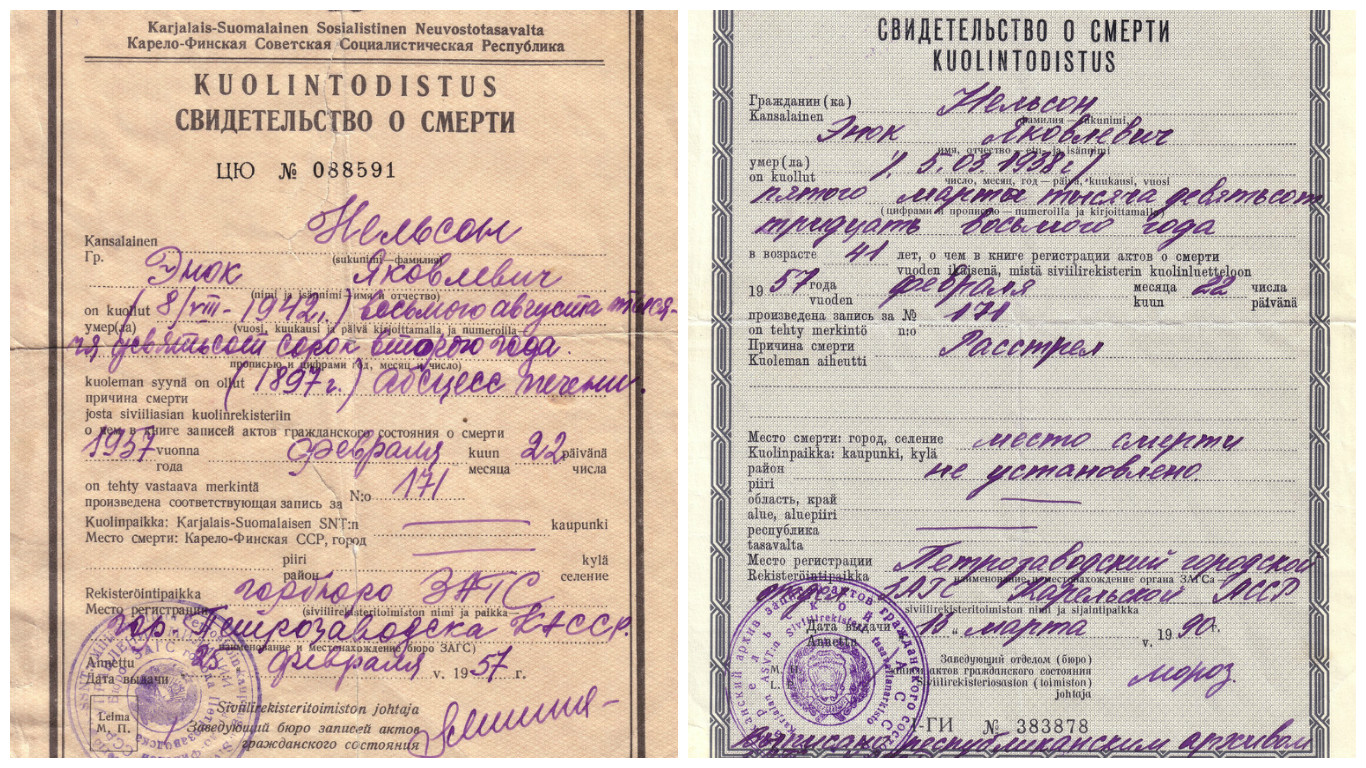 Karjalais-Suomalainen Sosialistinen Neuvostotasavalta
Карело-Финская Советская Социалистическая Республика
KUOLINTODISTUS
СВИДЕТЕЛЬСТВО О СМЕРТИ
ЦЮ № 088591
Kansalainen Нельсон
Гр. (sukunimi—фамилия)
Энок Яковлевич
(nimi ja isännimi—имя и отчество)
on kuollut (8/VIII-1942г.) восьмого августа тыся-
умер(ла) (vuosi, kuukausi ja päivä kirjoittamalla ja numeroilla—
ча девятьсот сорок второго года.
прописью и цифрами год, месяц и число)
kuoleman syynä on ollut (1897г.) абсцесс печени.
причина смерти
josta siviiliasian kuolinrekisteriin
о чем в книге записей актов гражданского состояния о смерти
1957 vuonna февраля kuun 22 päivänä
года месяца числа
on tehty vastaava merkintä
произведена соответствующая запись за N:o 171
Kuolinpaikka: Karjalais-Suomalaisen SNT:n kaupunki
Место смерти: Карело-Финская ССР, город
piiri kylä
район селение
Rekisteröintipaikka горбюро ЗАГС
Место регистрации (siviilirekisteritoimiston nimi ja paikka—
гор. Петрозаводска КАССР.
наименование и местонахождение бюро ЗАГС)
Annettu 25 февраля v. 1957 г.
Дата выдачи
Leima
М. П.
Siviilirekisteritoimiston johtaja
Заведующий бюро записей актов
гражданского состояния
СВИДЕТЕЛЬСТВО О СМЕРТИ
KUOLINTODISTUS
Гражданин(ка) Нельсон
Kansalainen фамилия—sukunimi,
Энок Яковлевич
имя, отчество—etu- ja isännimi
умер(ла) 5.03.1938г)
on kuollut число, месяц, год—päivä, kuukausi, vuosi
пятого марта тысяча девятьсот
(цифрами и прописью—numeroilla ja kirjoittamalla)
тридцать восьмого года
в возрасте 41 лет, о чем в книге регистрации актов о смерти
vuoden ikäisenä, mistä siviilirekisterin kuolinluetteloon
1957 года февраля месяца 22 числа
vuoden kuun päivänä
произведена запись за № 171
on tehty merkintö n:o
Причина смерти Расстрел
Kuoleman aiheutti
Место смерти: город, селение место смерти
Kuolinpaikka: kaupunki, kylä
район не установлено.
piiri
область, край
alue, aluepiiri
республика
tasavalta
Место регистрации Петрозаводский городской
Rekisteröintipaikka наименование и местонахождение органа ЗАГСа
ЗАГС Карельской АССР
siviilirekisteritoimiston nimi ja sijaintipaikka
Дата выдачи „16“ марта v. 1990 г.
Annettu
Заведующий отделом (бюро)
М. П. записи актов гражданского состояния мороз.
L. P. Siviilirekisteriosaston (toimiston)
johtaja
I-ГИ № 383878
выписано республиканским архивом